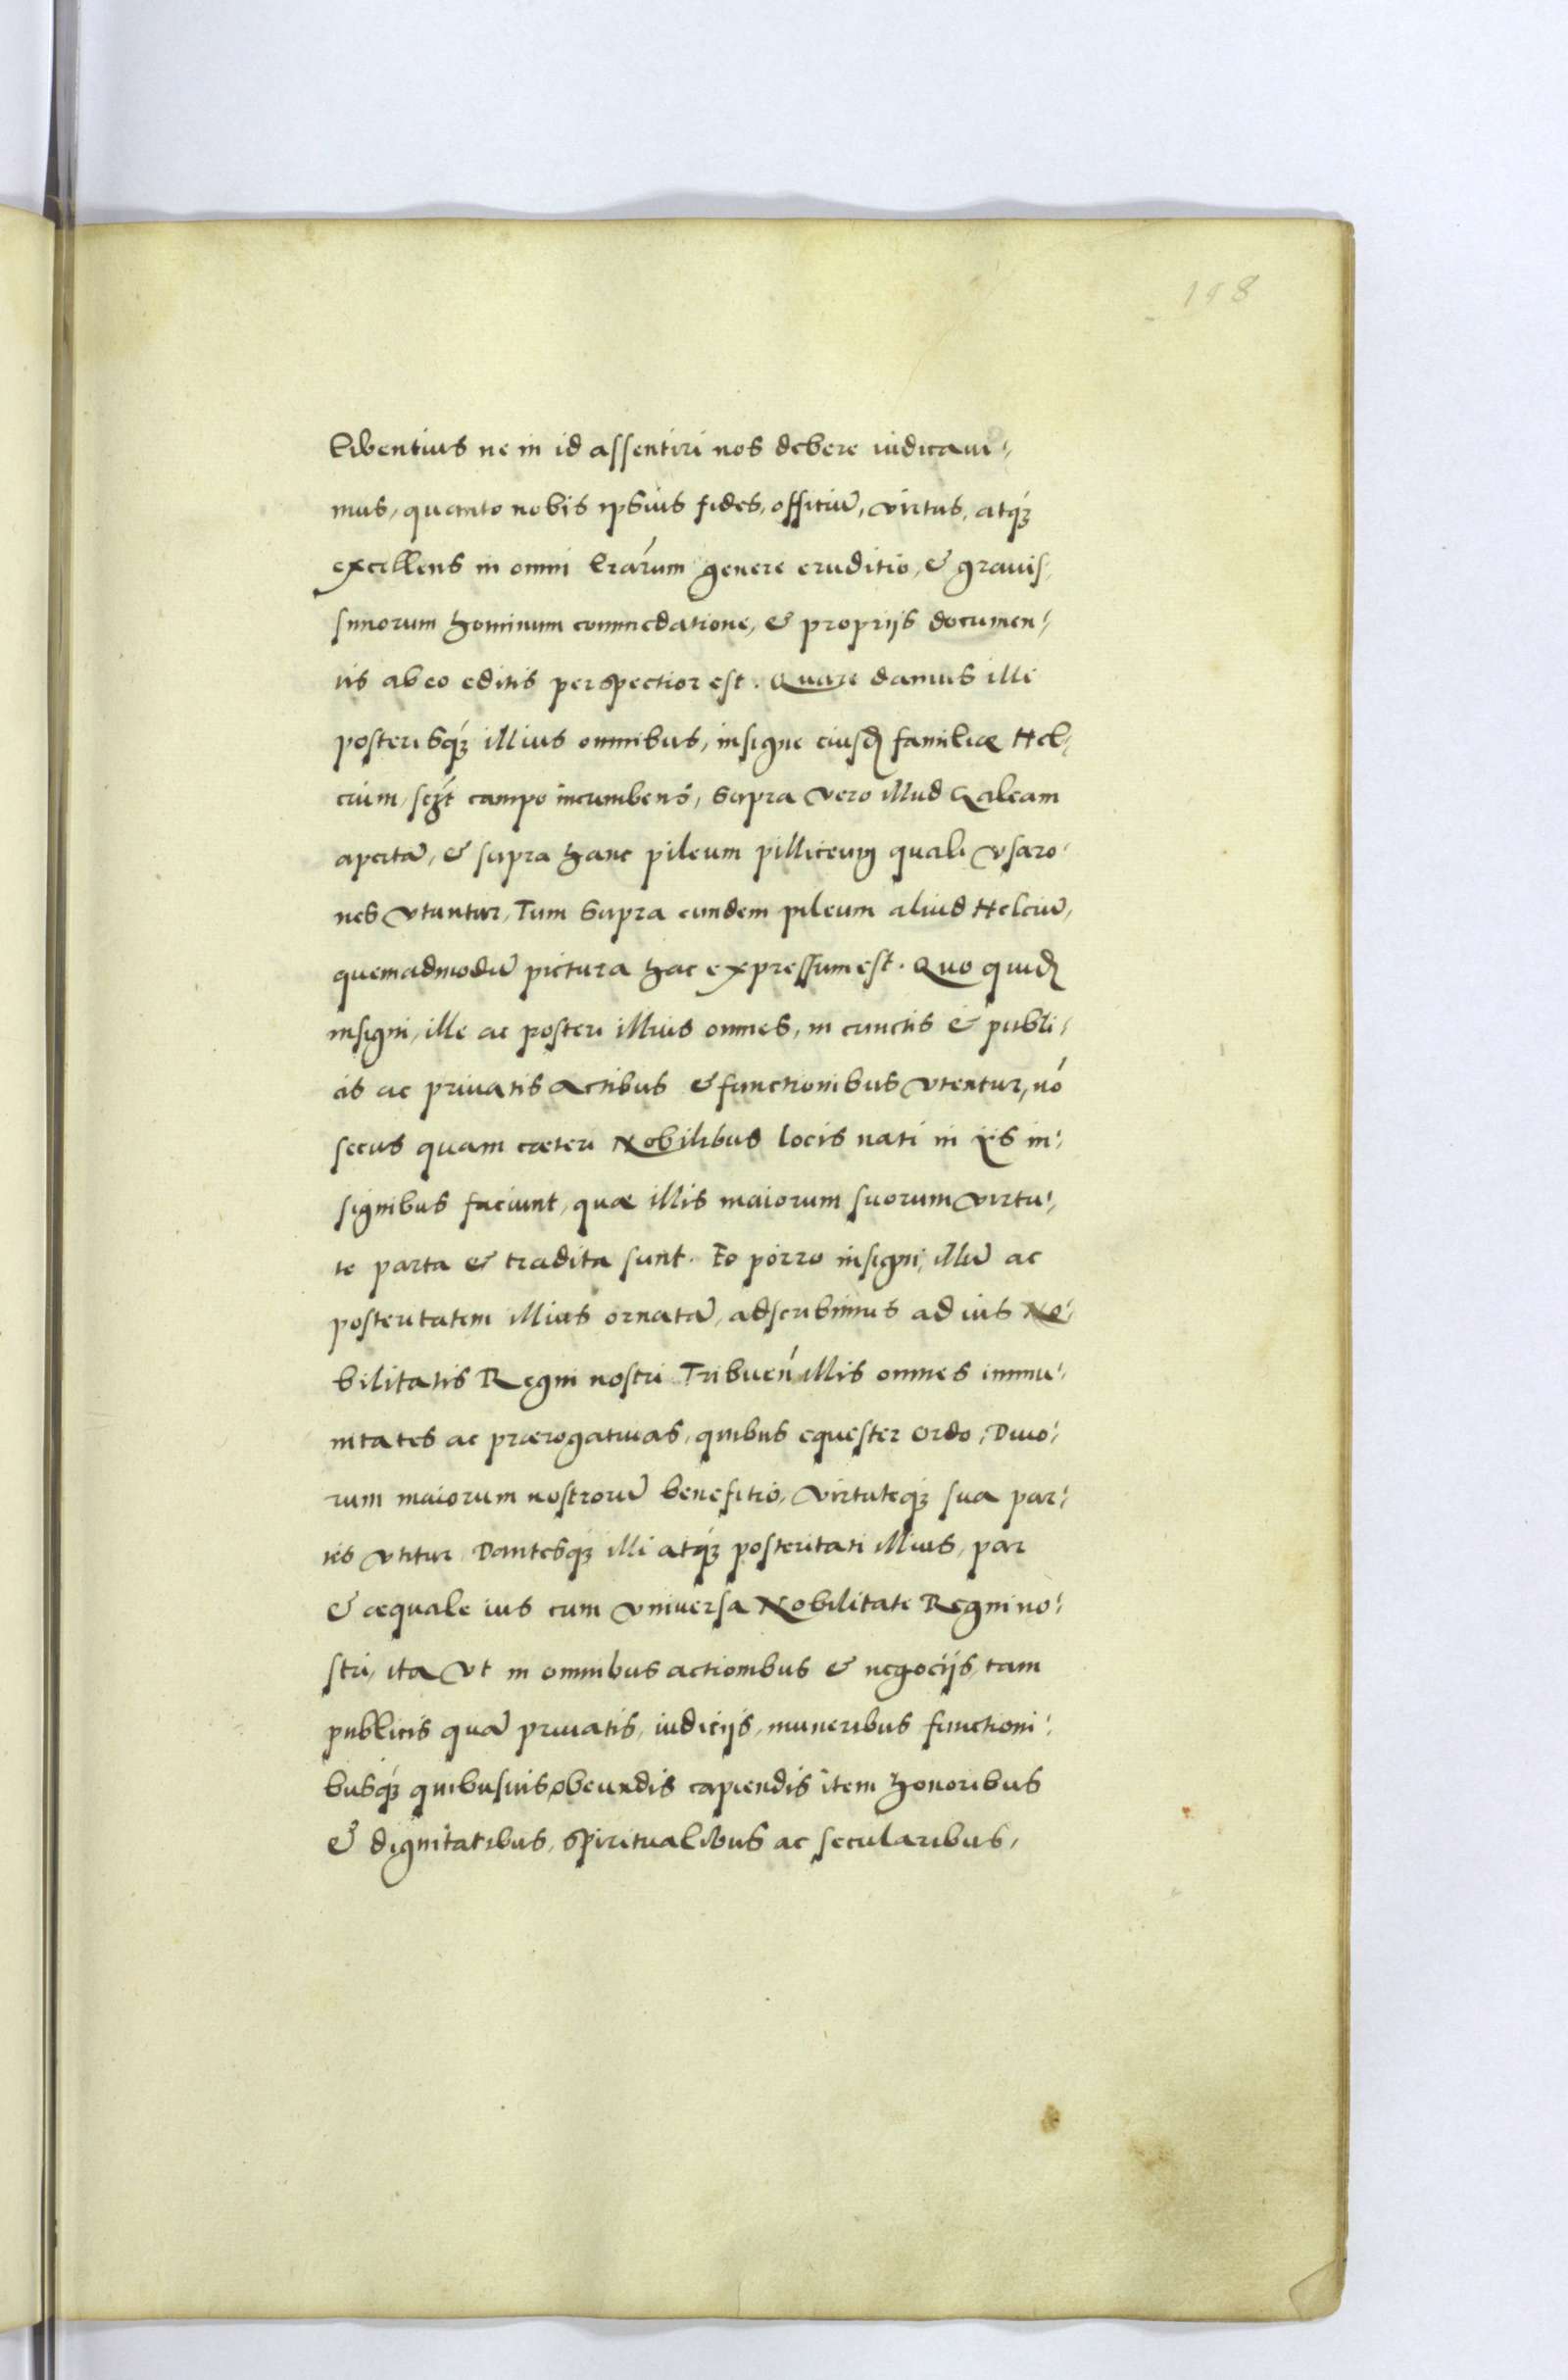 198
libentius ne in id assentiri nos debere iudicaui⸗
mus, quanto nobis ipsius fides, offitiū, virtus, atq́ꝫ
excellens in omni lrárum genere eruditio, & grauis⸗
simorum hominum commēdatione, & proprijs documen⸗
tis ab eo editis perspectior est. Quare damus illi
posterisq́ꝫ illius omnibus, insigne eiusđ familiæ Hel⸗
cium, sc̨t campo incumbens, supra vero illud Galeam
apertā, & supra hanc pileum pilliceum quali vsaro⸗
nes vtuntur, Tum supra eundem pileum aliud Helciū,
quemadmodū pictura hac expressum est. Quo quidē
insigni, ille ac posteri illius omnes, in cunctis & publi⸗
cis ac priuatis actibus & functionibus vtentur, nō
secus quam cæteri Nobilibus locis nati in ijs in⸗
signibus faciunt, quæ illis maiorum suorum virtu⸗
te parta & tradita sunt. Eo porro insigni, illū ac
posteritatem illius ornatā, adscribimus ad ius No⸗
bilitatis Regni nostri Tribuen̄ illis omnes immu⸗
nitates ac prærogatiuas, quibus equester ordo, Diuo⸗
rum maiorum nostrorū benefitio, virtuteq́ꝫ sua par⸗
tis vtitur Dantesq́ꝫ illi atq́ꝫ posteritati illius, par
& æquale ius cum vniuersa Nobilitate Regni no⸗
stri, ita vt in omnibus actionibus & negocijs, tam
publicis quā priuatis, iudicijs, muneribus functioni⸗
busq́ꝫ quibusuis obeundis capiendis item honoribus
& dignitatibus, spiritualibus ac secularibus,